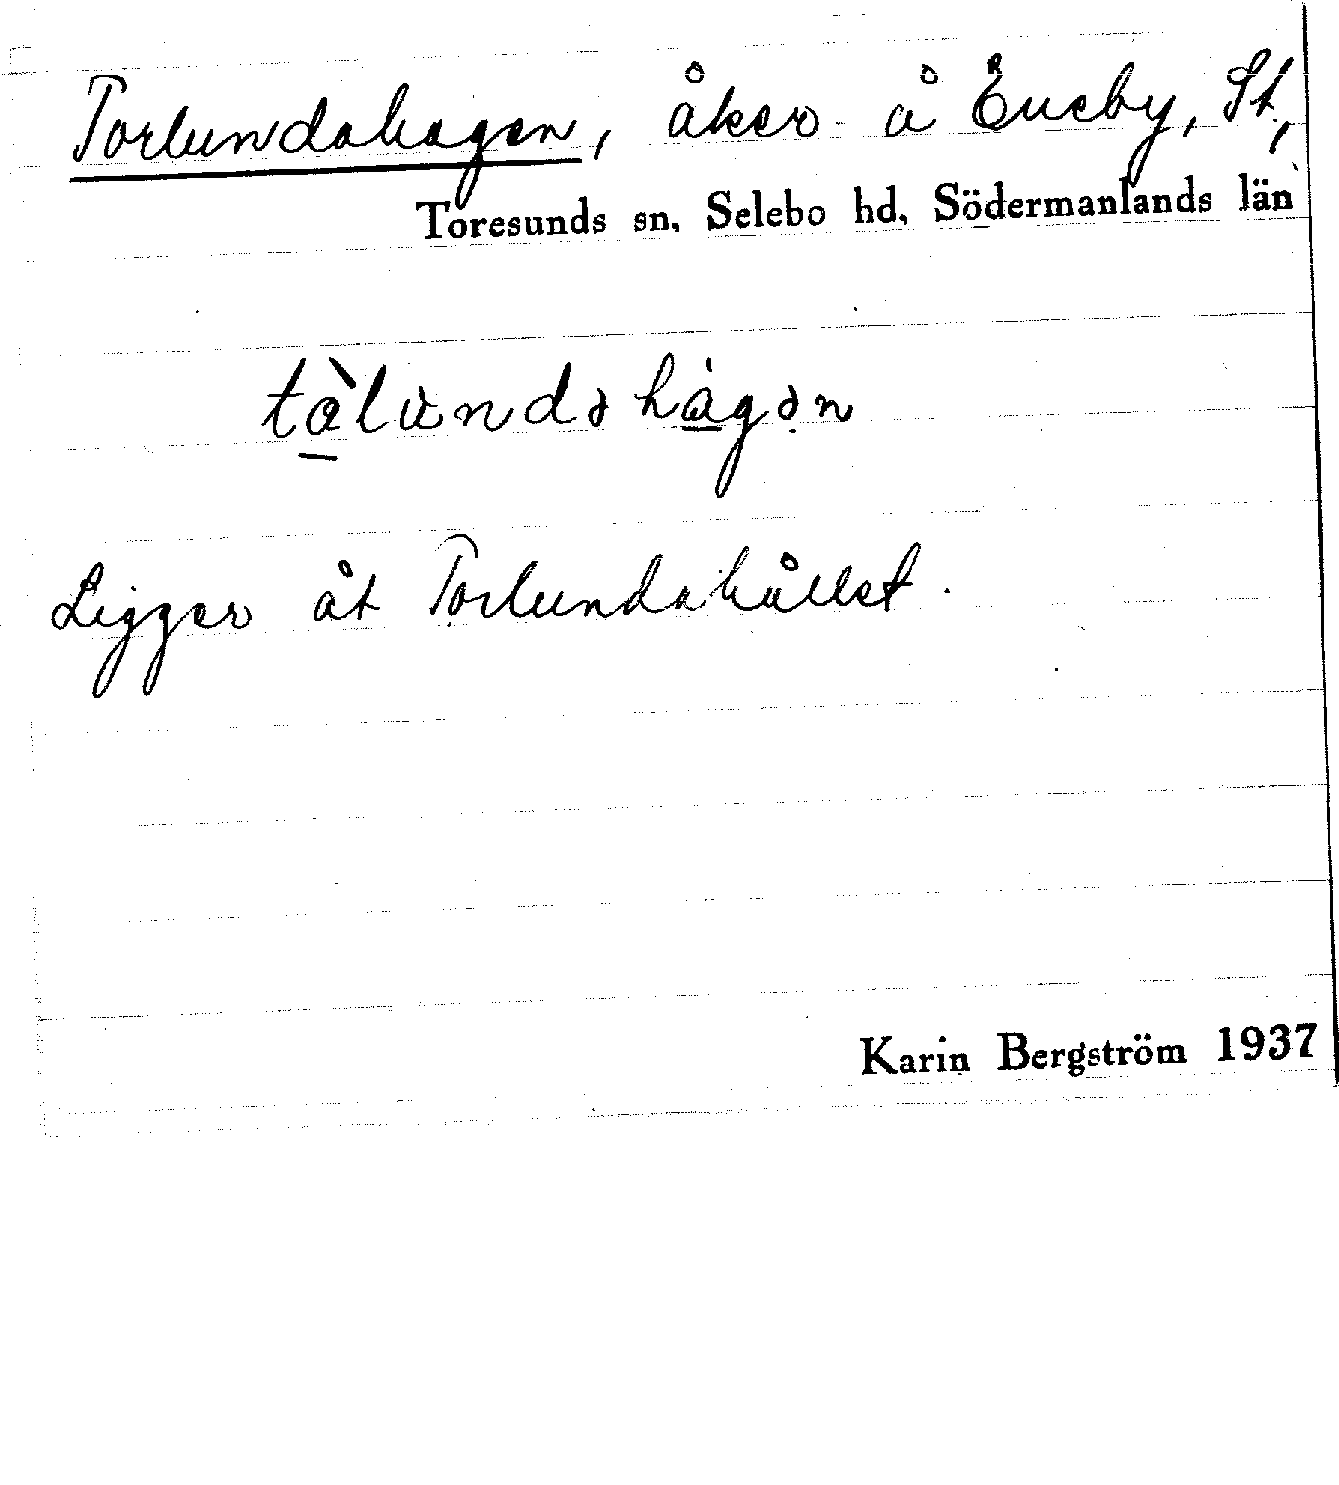 Torlundahagen, åker å Eneby, St,
Toresunds sn, Selebo hd, Södermanlands län
tàlùndəhàgən
Ligger åt Torlundahållet.
Karin Bergström 1937